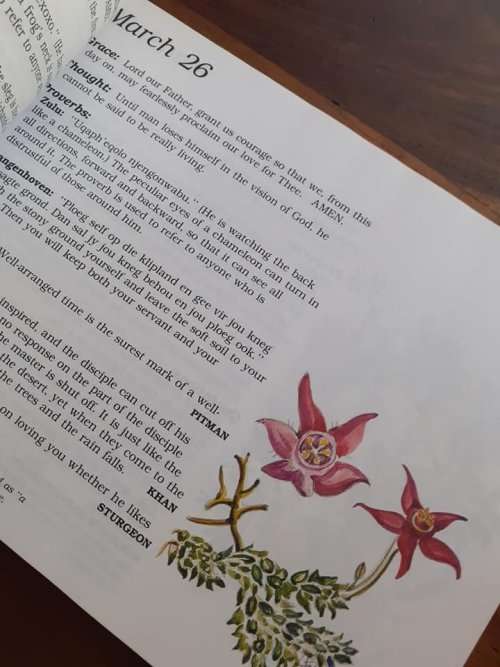 exoxo." (He
frog's neck
to refer to anyone
March 26
Grace: Lord our Father, grant us courage so that we, from this
day on, may fearlessly proclaim our love for Thee. AMEN.
Thought: Until man loses himself in the vision of God, he
cannot be said to be really living.
Proverbs:
Zulu: "Uqaph'eqolo njengonwabu." (He is watching the back
like a chameleon.) The peculiar eyes of a chameleon can turn in
all directions, forward and backward, so that it can see all
around it. The proverb is used to refer to anyone who is
distrustful of those around him.
angenhoven: "Ploeg self op die klipland en gee vir jou kneg
sagte grond. Dan sal jy jou kneg behou en jou ploeg ook."
the stony ground yourself and leave the soft soil to your
Then you will keep both your servant and your
Well-arranged time is the surest mark of a well-
PITMAN
inspired, and the disciple can cut off his
no response on the part of the disciple
the master is shut off. It is just like the
the desert, yet when they come to the
the trees and the rain falls.
KHAN
on loving you whether he likes
STURGEON
as "a